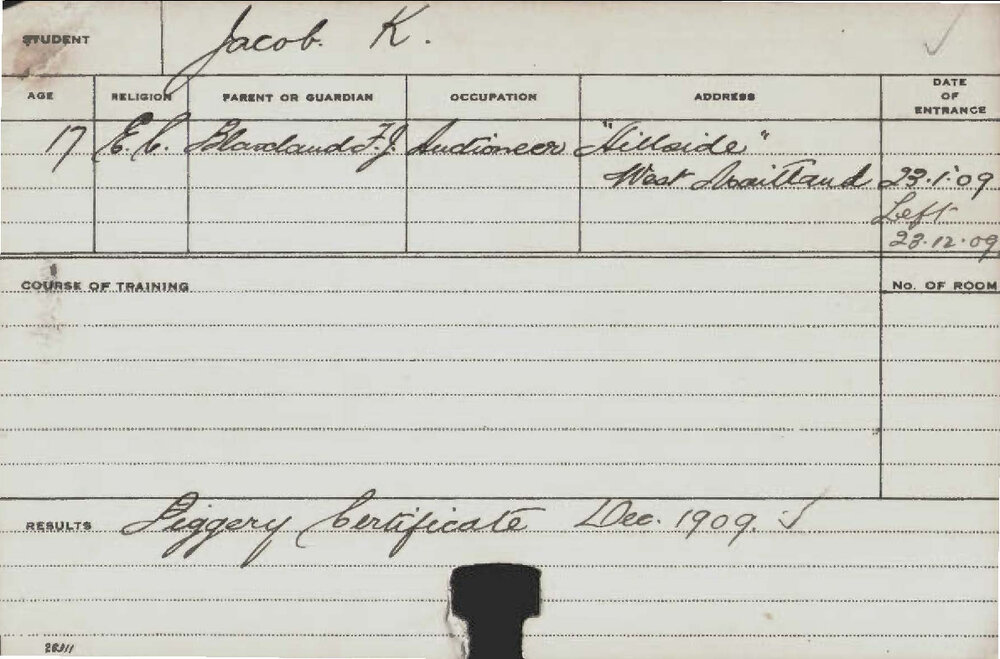 STUDENT Jacob. K.
AGE RELIGION PARENT OR GUARDIAN OCCUPATION ADDRESS DATE OF ENTRANCE
17 E.C. Blaxland F.J. Auctioneer "Hillside"
West Maitland 23.1.09
Left
23.12.09
COURSE OF TRAINING No. OF ROOM
RESULTS Piggery Certificate Dec. 1909. ✓